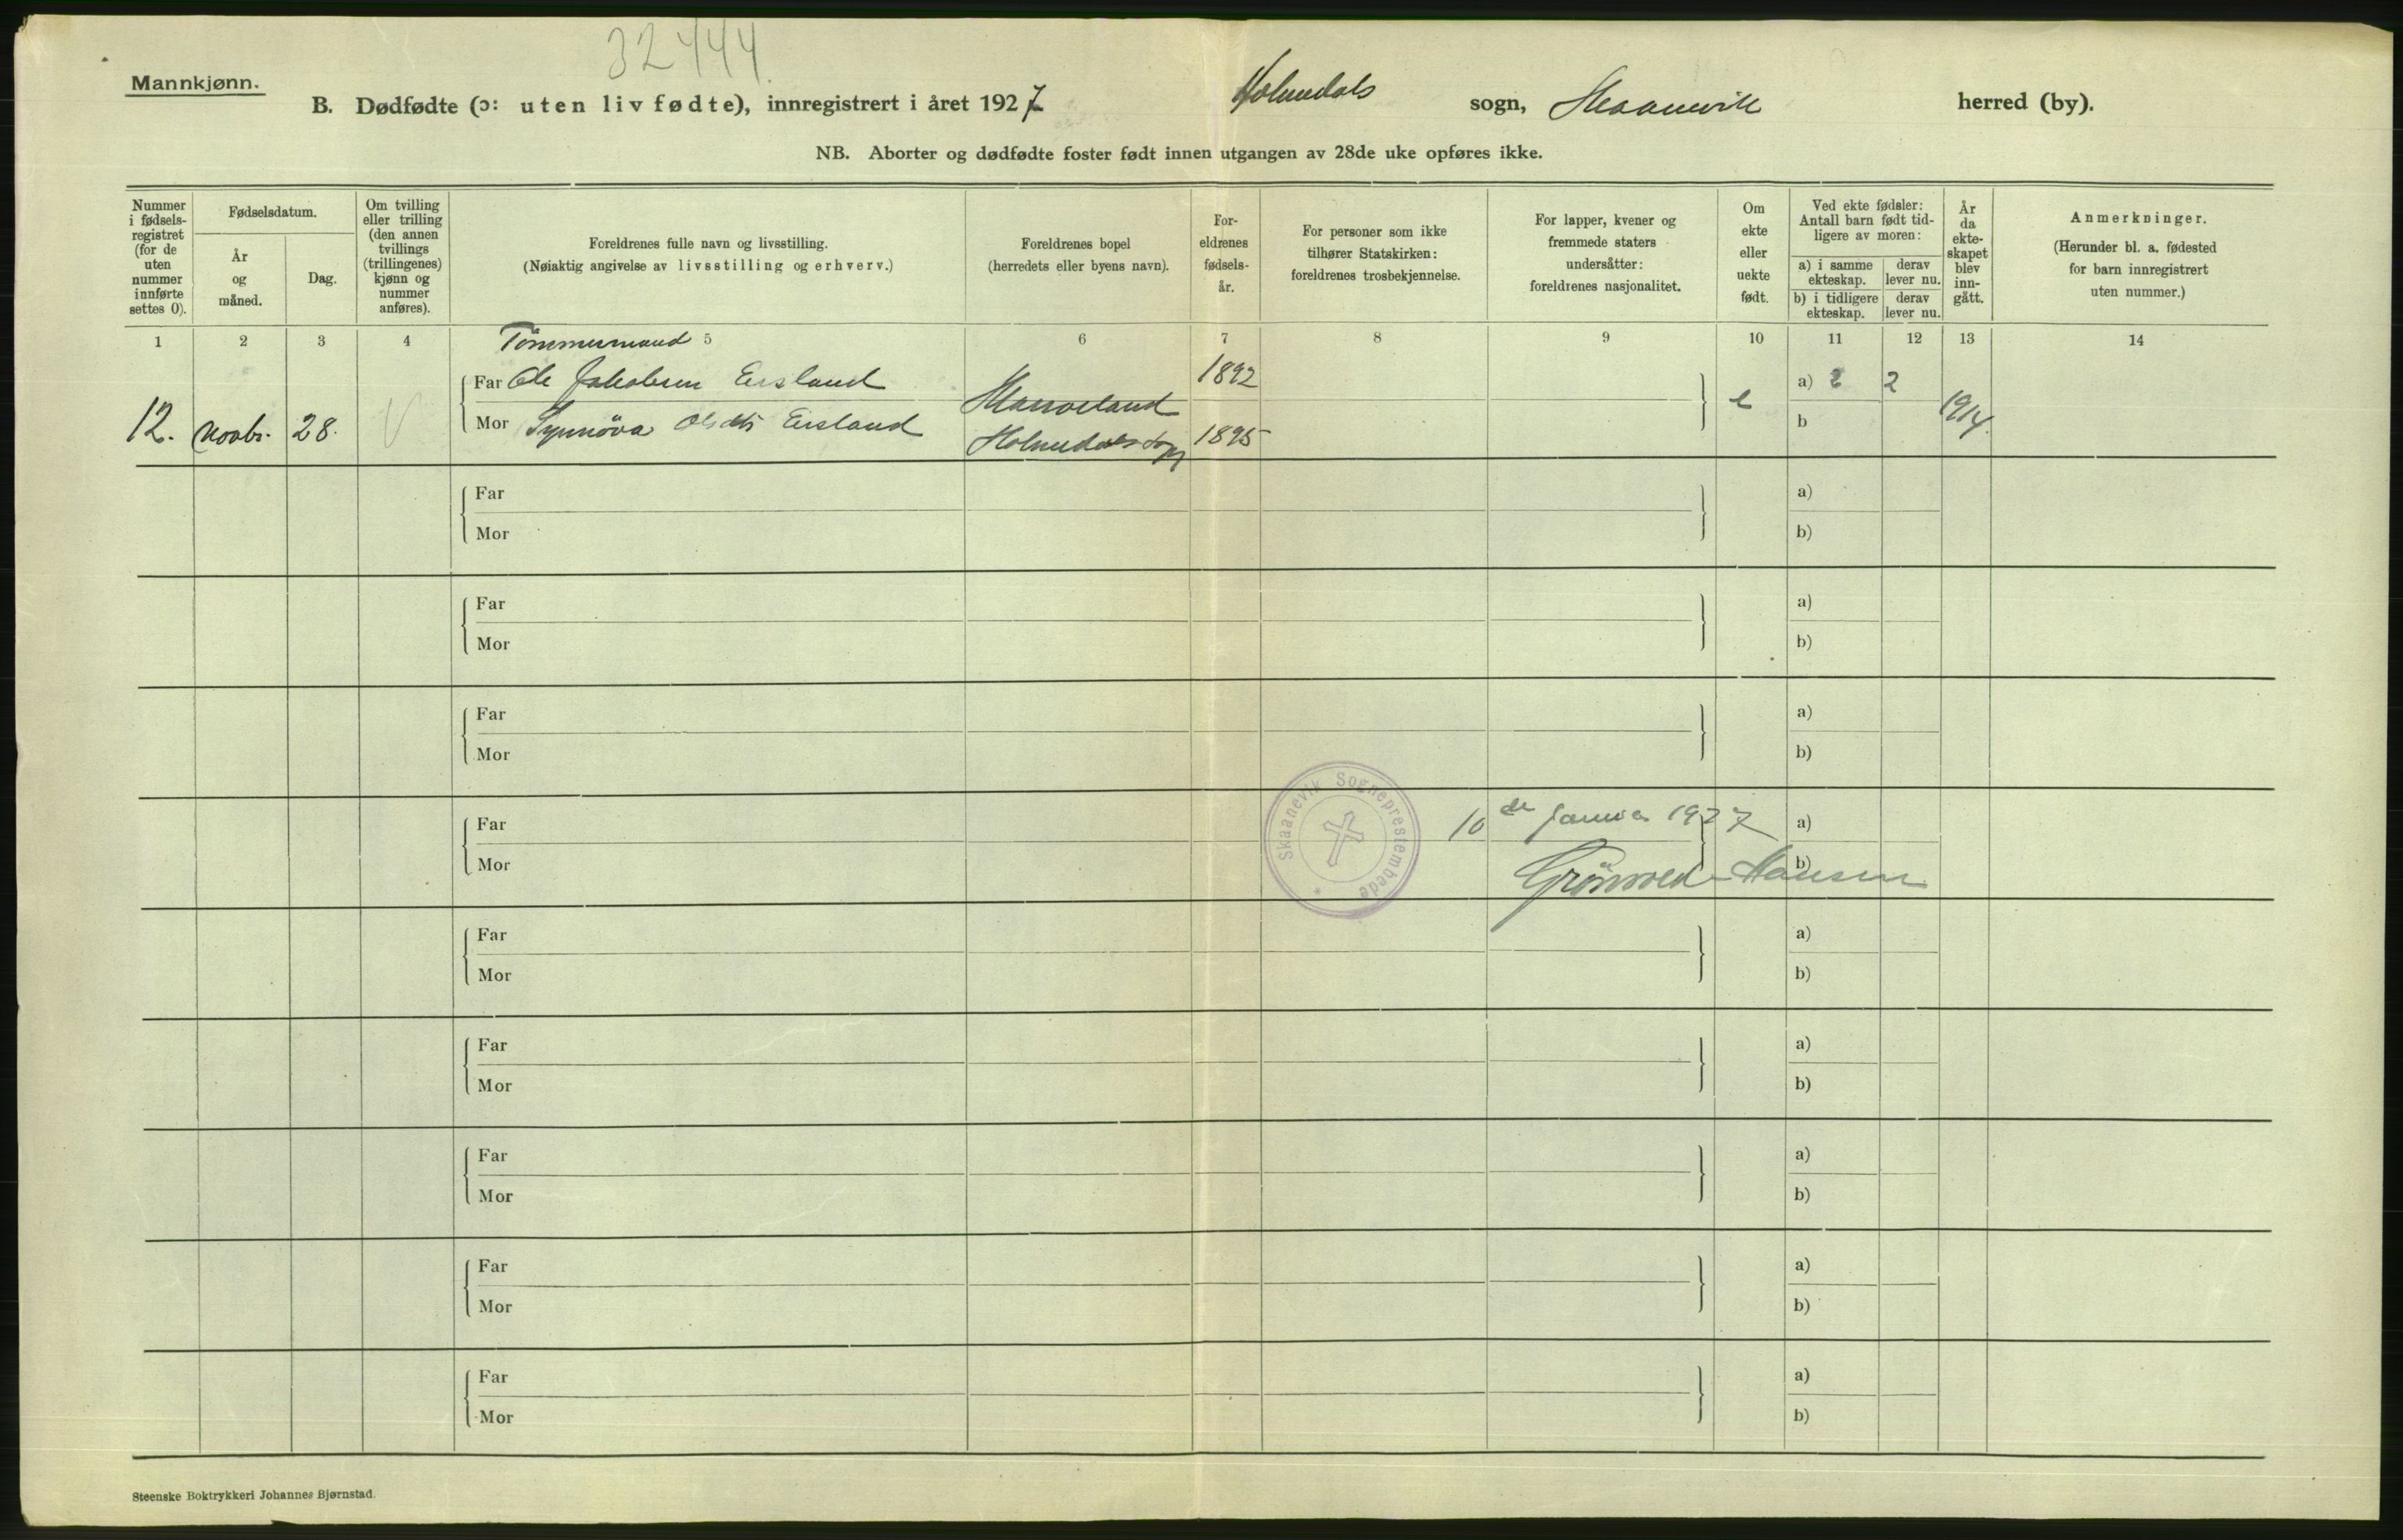 32444.
Mannkjønn.
B. Dødfødte (ɔ: uten liv fødte), innregistrert i året 1927 Holmedals sogn, Skaanevik herred (by).
NB. Aborter og dødfødte foster født innen utgangen av 28de uke opføres ikke.
Nummer i fødsels-registret (for de uten nummer innførte settes 0).
Fødselsdatum.
År og måned.
Dag.
Om tvilling eller trilling (den annen tvillings (trillingenes) kjønn og nummer anføres).
Foreldrenes fulle navn og livsstilling.
(Nøiaktig angivelse av livsstilling og erhverv.)
Foreldrenes bopel
(herredets eller byens navn).
For-eldrenes fødsels-år.
For personer som ikke tilhører Statskirken: foreldrenes trosbekjennelse.
For lapper, kvener og fremmede staters undersåtter: foreldrenes nasjonalitet.
Om ekte eller uekte født.
Ved ekte fødsler: Antall barn født tid-ligere av moren:
a) i samme ekteskap. derav lever nu.
b) i tidligere ekteskap. derav lever nu.
År da ekte-skapet blev inn-gått.
Anmerkninger.
(Herunder bl. a. fødested for barn innregistrert uten nummer.)
1 2 3 4 5 6 7 8 9 10 11 12 13 14
Tömmermand
Far Ole Jakobsen Eisland 1892 a) 2 2
12. Novbr. 28. Mor Synnöva Olsdtr Eisland Holmedals sogn 1895 e b 1914.
Far a)
Mor b)
Far a)
Mor b)
Far a)
Mor b)
Skaanevik Sogneprestembede *
Far 10 de januar 1927 a)
Mor Grönvold-Hansen b)
Far a)
Mor b)
Far a)
Mor b)
Far a)
Mor b)
Far a)
Mor b)
Far a)
Mor b)
Steenske Boktrykkeri Johannes Bjørnstad.